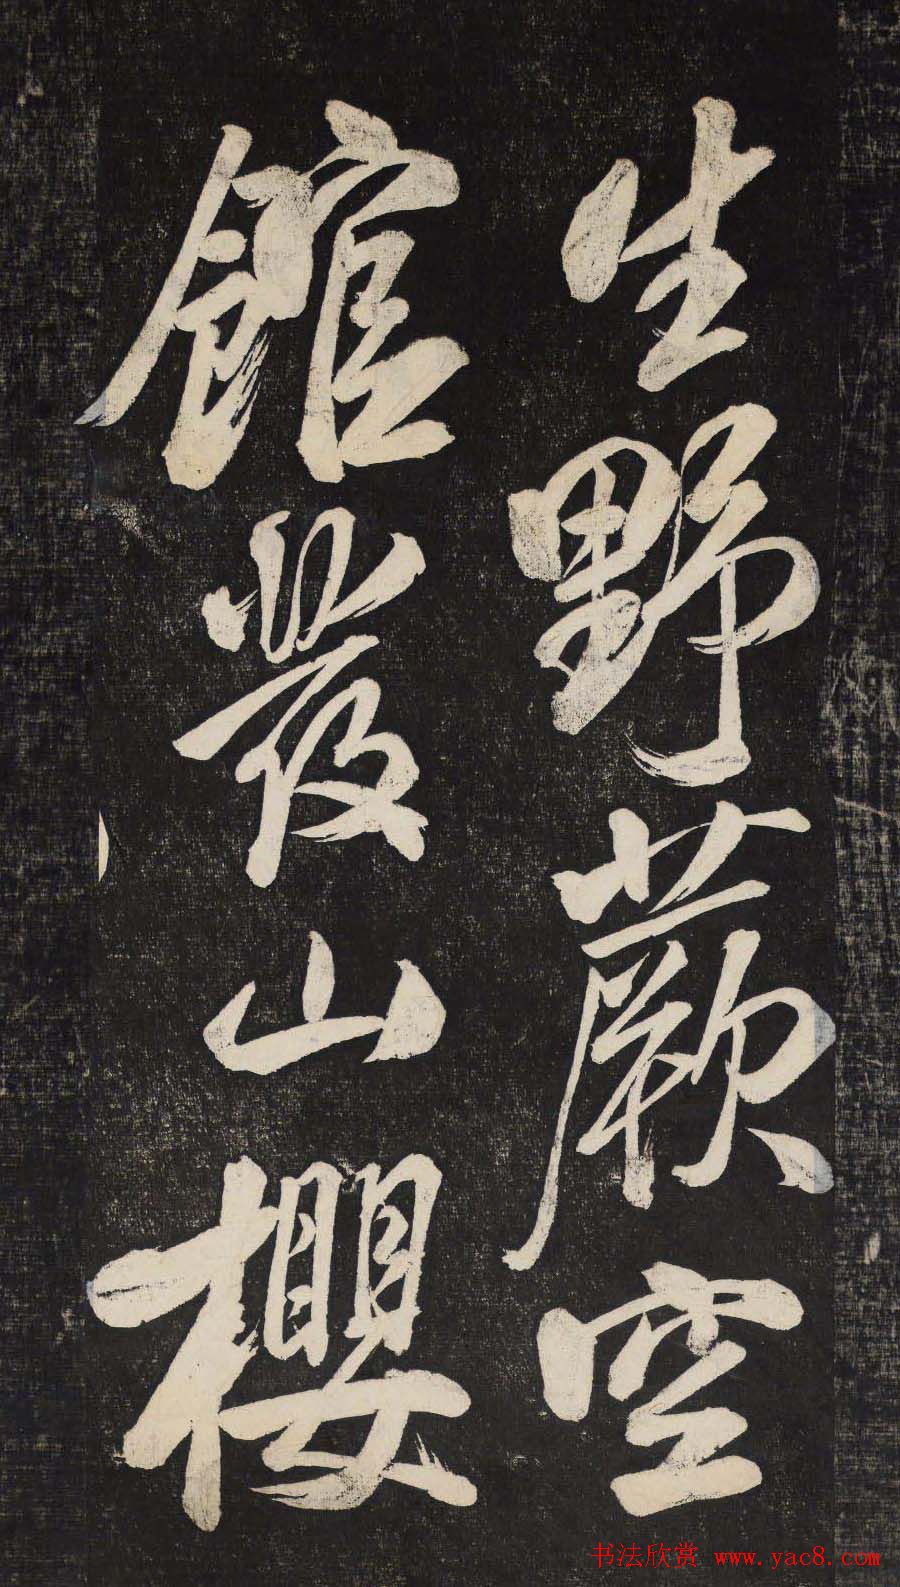 生野蕨空
館發山櫻
书法欣赏 www.yac8.com